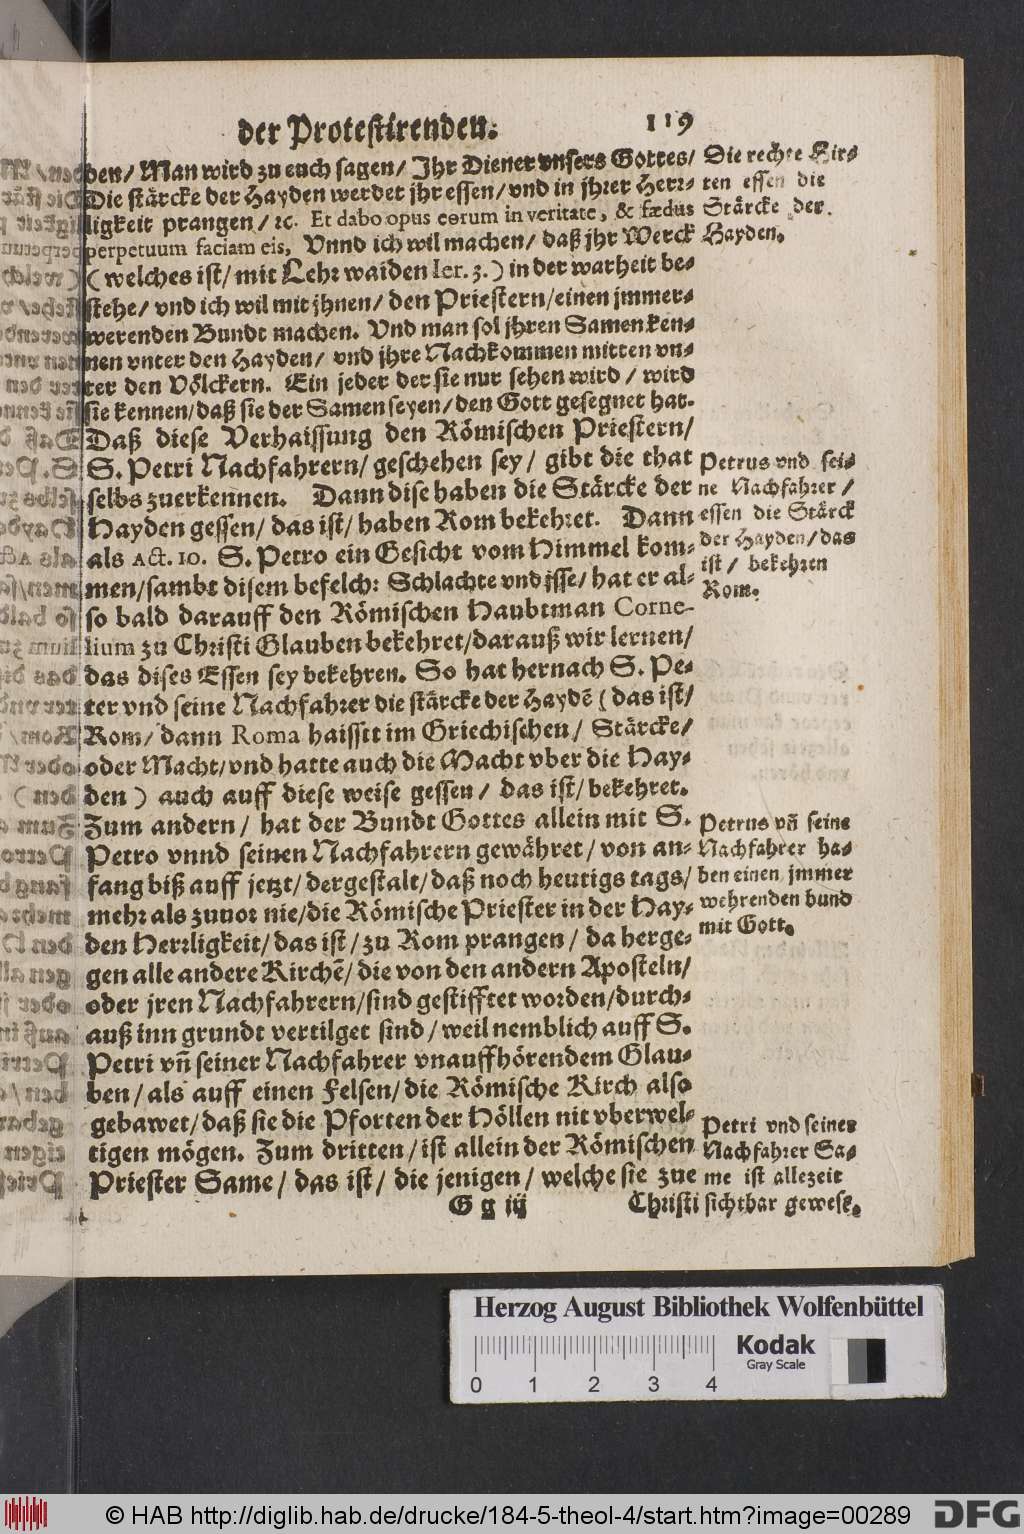 der Protestirenden. 119
den/ Man wird zu euch sagen/ Jhr Diener vnsers Gottes/
Die stärcke der Hayden werdet jhr essen/ vnd in jhrer Herr-
ligkeit prangen/ ꝛc. Et dabo opus eorum in veritate, & fædus
perpetuum faciam eis, Vnnd ich wil machen/ daß jhr Werck
(welches ist/ mit Lehr waiden Ier. 3.) in der warheit be-
stehe/ vnd ich wil mit jhnen/ den Priestern/ einen jmmer-
werenden Bundt machen. Vnd man sol jhren Samen ken-
nen vnter den Hayden/ vnd jhre Nachkommen mitten vn-
ter den Völckern. Ein jeder der sie nur sehen wird/ wird
sie kennen/ daß sie der Samen seyen/ den Gott gesegnet hat.
Daß diese Verhaissung den Römischen Priestern/
S. Petri Nachfahrern/ geschehen sey/ gibt die that
selbs zuerkennen. Dann dise haben die Stärcke der
Hayden gessen/ das ist/ haben Rom bekehret. Dann
als Act. 10. S. Petro ein Gesicht vom Himmel kom-
men/ sambt disem befelch: Schlachte vnd jsse/ hat er al-
so bald darauff den Römischen Haubtman Corne-
lium zu Christi Glauben bekehret/ darauß wir lernen/
das dises Essen sey bekehren. So hat hernach S. Pe-
ter vnd seine Nachfahrer die stärcke der Haydē (das ist/
Rom/ dann Roma haisstt im Griechischen/ Stärcke/
oder Macht/ vnd hatte auch die Macht vber die Hay-
den) auch auff diese weise gessen/ das ist/ bekehret.
Zum andern/ hat der Bundt Gottes allein mit S.
Petro vnnd seinen Nachfahrern gewähret/ von an-
fang biß auff jetzt/ dergestalt/ daß noch heutigs tags/
mehr als zuuor nie/ die Römische Priester in der Hay-
den Herrligkeit/ das ist/ zu Rom prangen/ da herge-
gen alle andere Kirchē/ die von den andern Aposteln/
oder jren Nachfahrern/ sind gestifftet worden/ durch-
auß inn grundt vertilget sind/ weil nemblich auff S.
Petri vn̄ seiner Nachfahrer vnauffhörendem Glau-
ben/ als auff einen Felsen/ die Römische Kirch also
gebawet/ daß sie die Pforten der Höllen nit vberwel-
tigen mögen. Zum dritten/ ist allein der Römischen
Priester Same/ das ist/ die jenigen/ welche sie zue
G g iij Christi
Die rechte Kir-
ten essen die
Stärcke der
Hayden.
Petrus vnd sei-
ne Nachfahrer/
essen die Stärck
der Hayden/ das
ist/ bekehren
Rom.
Petrus vn̄ seine
Nachfahrer ha-
ben einen jmmer
wehrenden bund
mit Gott.
Petri vnd seiner
Nachfahrer Sa-
me ist allezeit
sichtbar gewest.
Herzog August Bibliothek Wolfenbüttel
Kodak
Gray Scale
0 1 2 3 4
© HAB http://diglib.hab.de/drucke/184-5-theol-4/start.htm?image=00289
DFG